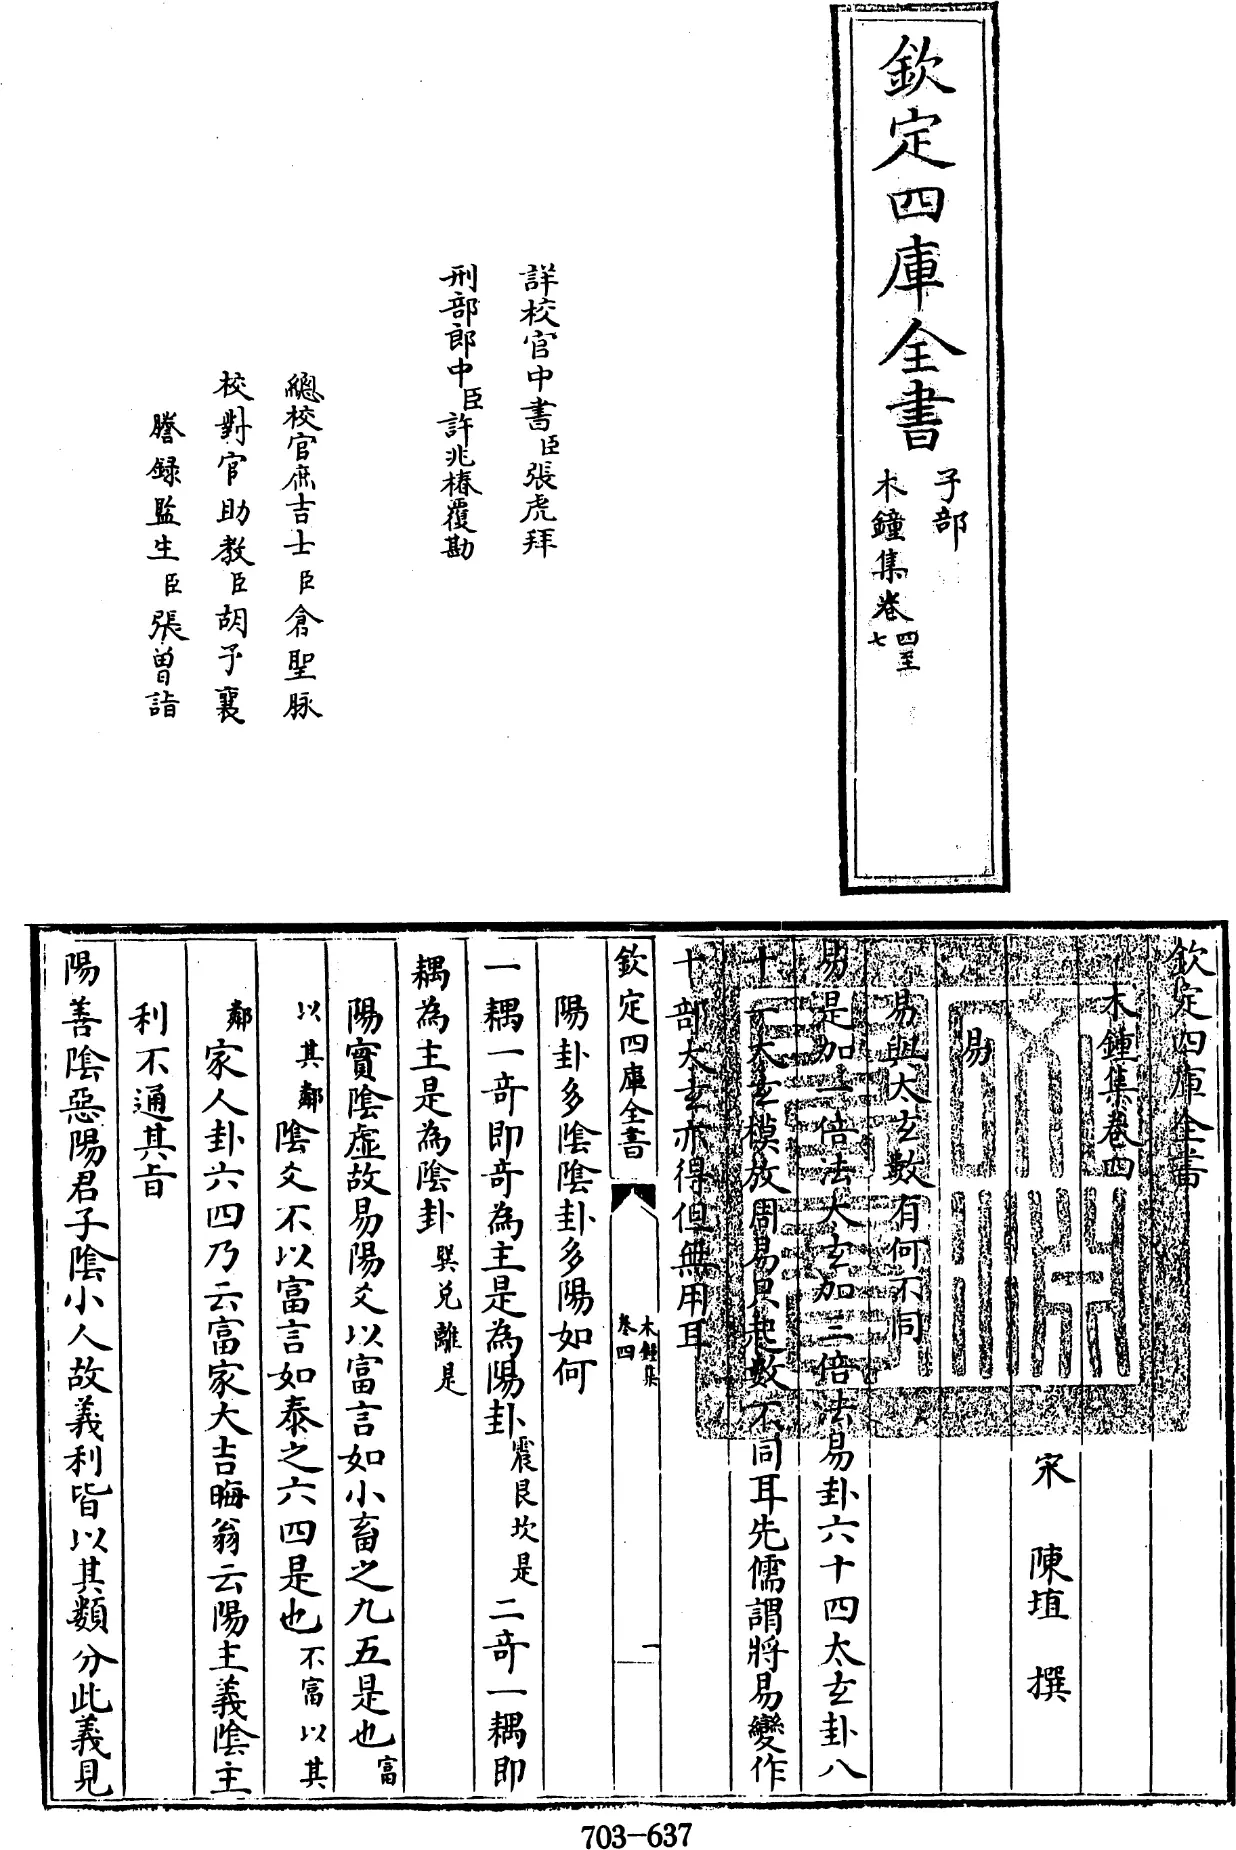 欽定四庫全書
子部
木鐘集卷四至七
詳校官中書臣張虎拜
刑部郎中臣許兆椿覆勘
總校官庶吉士臣倉聖脉
校對官助教臣胡予襄
謄録監生臣張曽詣
欽定四庫全書
木鍾集卷四
宋 陳埴 撰
易
易與太玄數有何不同
易是加一倍法太玄加三倍法易卦六十四太玄卦八
十一太玄模放周易只起數不同耳先儒謂將易變作
十部太玄亦得但無用耳
欽定四庫全書
木鍾集
卷四
一
陽卦多陰陰卦多陽如何
一耦一奇即奇為主是為陽卦震艮坎是二奇一耦即
耦為主是為陰卦巽兌離是
陽實陰虛故易陽爻以富言如小畜之九五是也富
以其鄰陰爻不以富言如泰之六四是也不富以其
鄰家人卦六四乃云富家大吉晦翁云陽主義陰主
利不通其旨
陽善陰惡陽君子陰小人故義利皆以其類分此義見
703-637